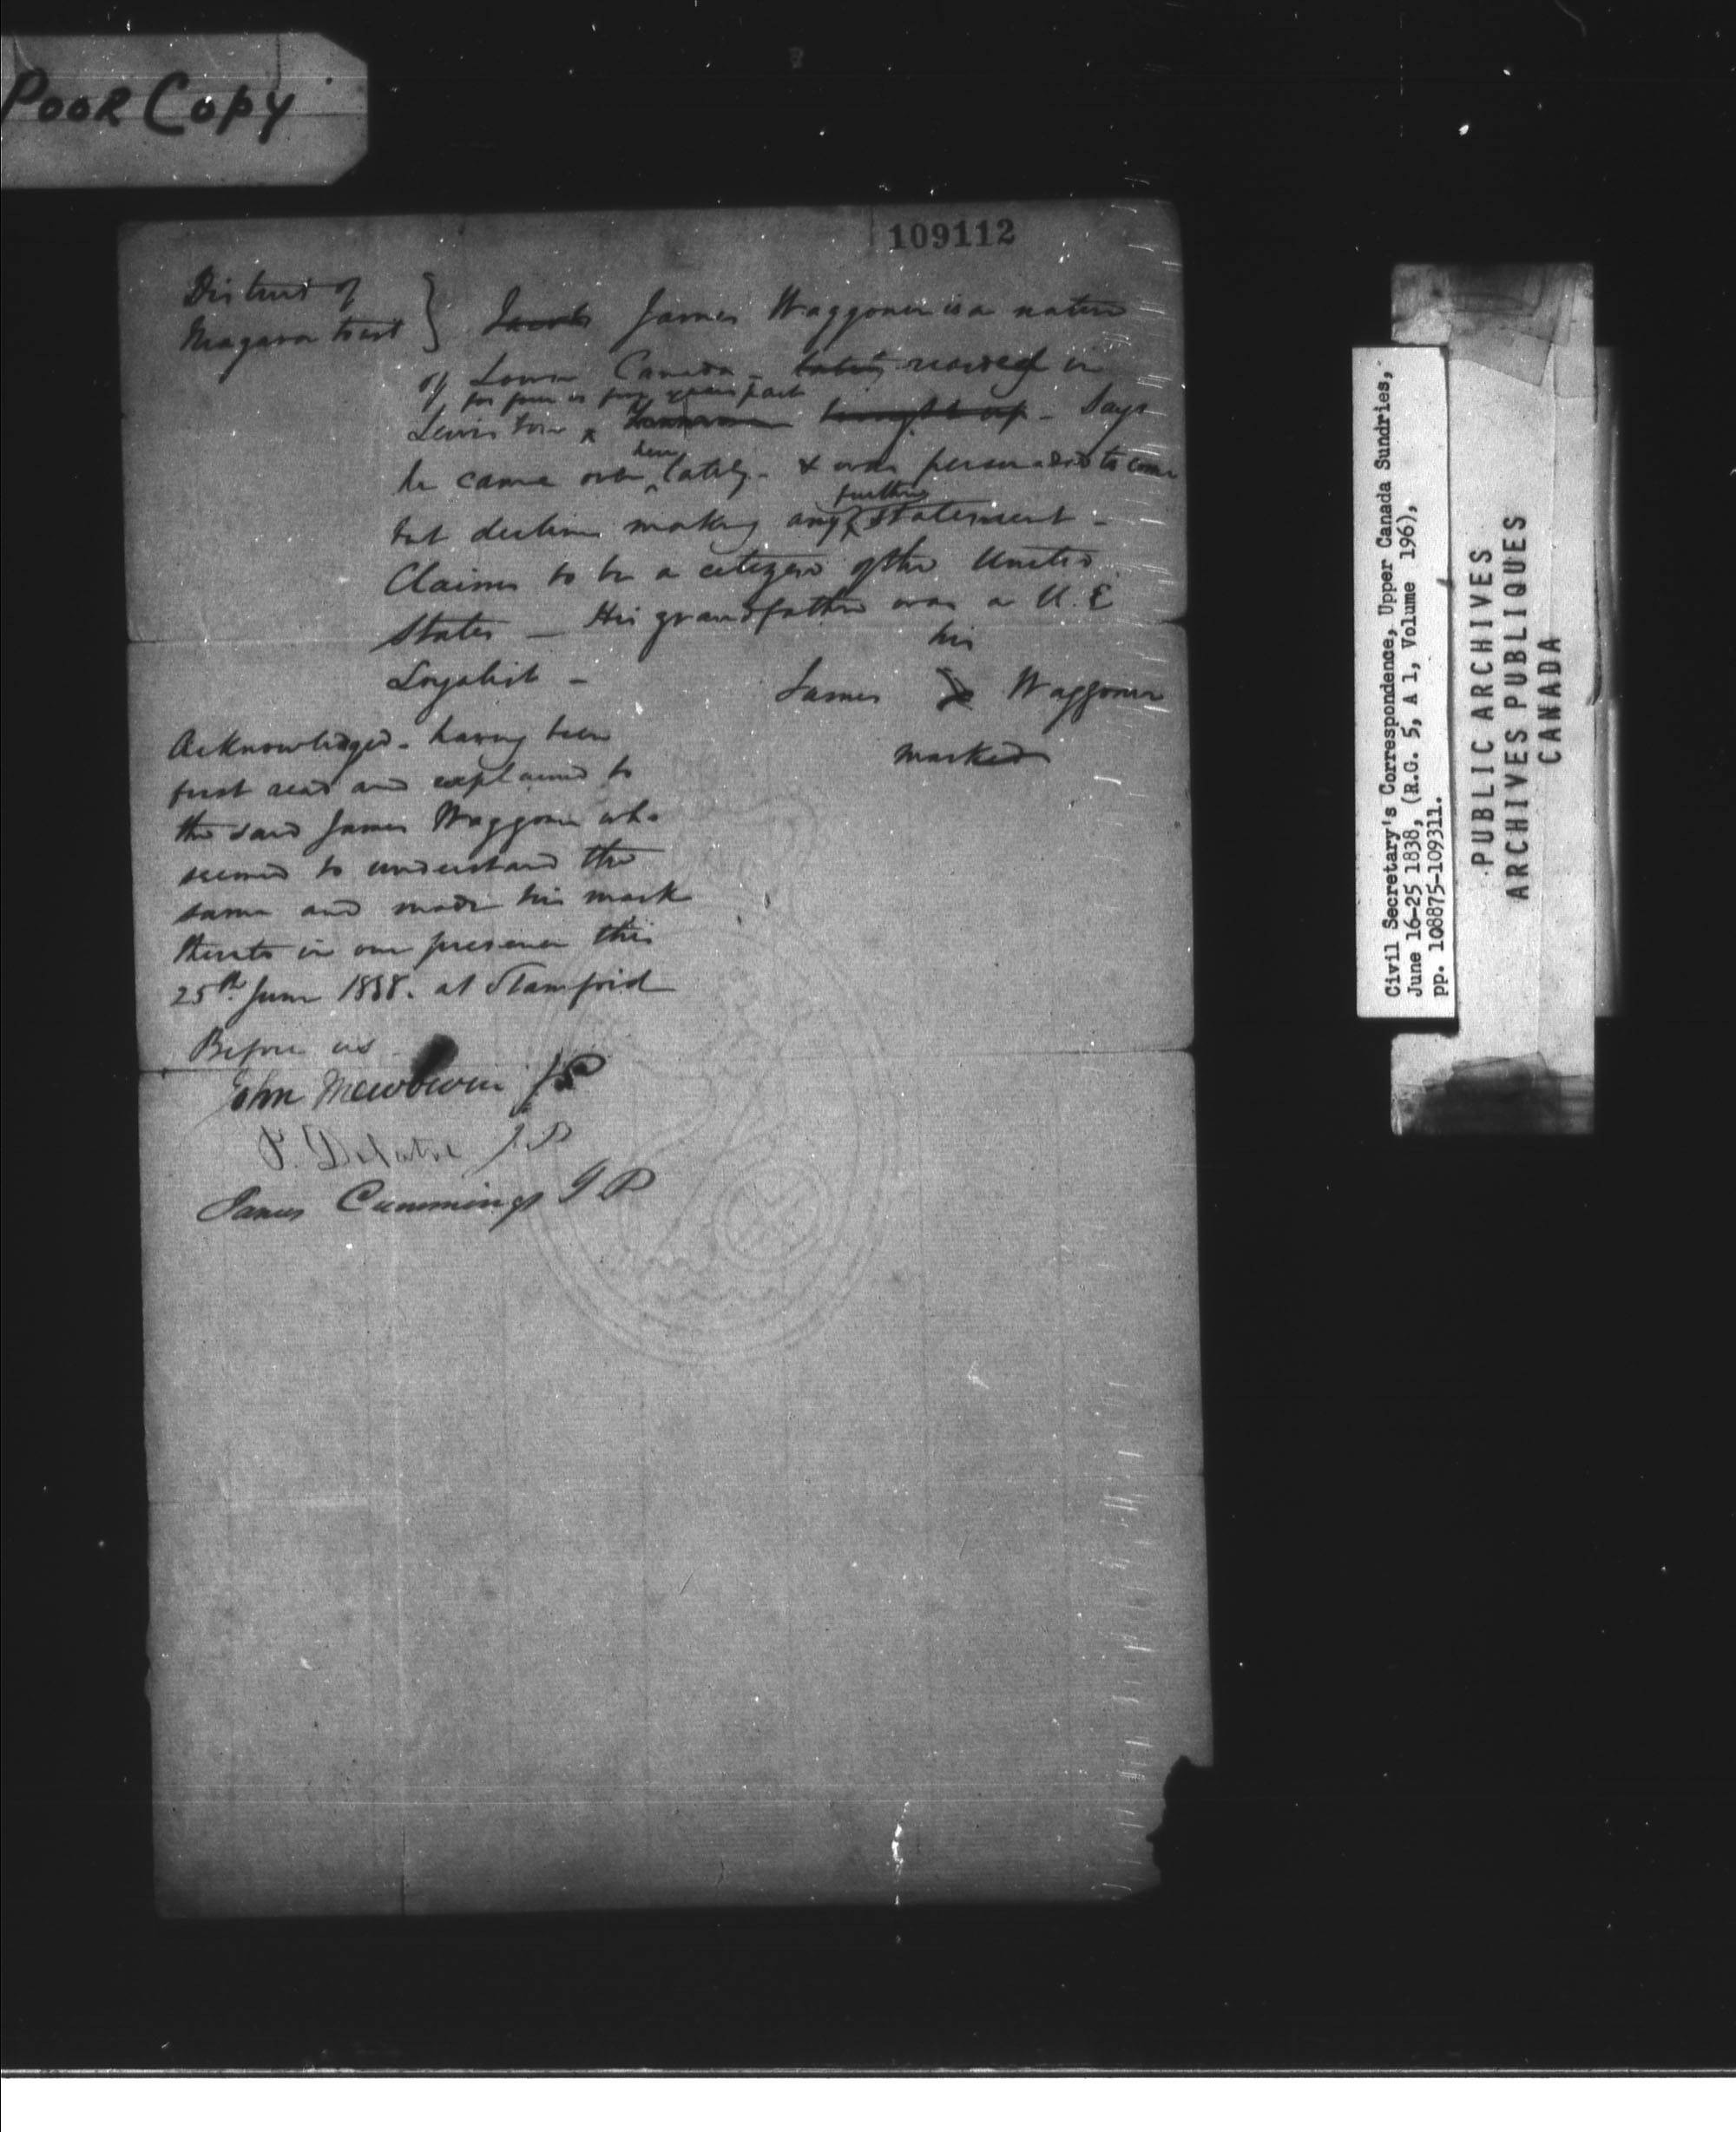 POOR COPY
109112
District of
Niagara to wit } Jacob James Waggoner is a native
of Lower Canada - lately resided in
for four or five years past
Lewiston brought up - Says
here
he came over lately - & was persuaded to come
further
but declines making any statement -
Claims to be a citizen of the United
States - His grandfather was a U. E
Loyalist -
his
James X Waggoner
marked
Acknowledged - having been
first read and explained to
the said James Waggoner who
seemed to understand the
same and made his mark
thereto in our presence this
25th June 1838. at Stamford
Before us
John Mewburn JP
P. Delatre J.P
James Cummings J P
Civil Secretary's Correspondence, Upper Canada Sundries,
June 16-25 1838, (R.G. 5, A 1, Volume 196),
pp. 108875-109311.
PUBLIC ARCHIVES
ARCHIVES PUBLIQUES
CANADA